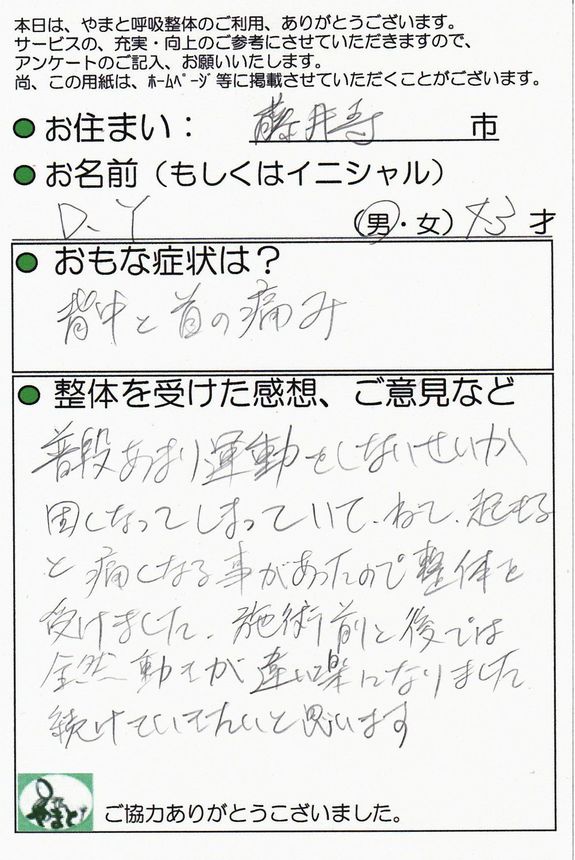 本日は、やまと呼吸整体のご利用、ありがとうございます。
サービスの、充実・向上のご参考にさせていただきますので、
アンケートのご記入、お願いいたします。
尚、この用紙は、ﾎｰﾑﾍﾟｰｼﾞ等に掲載させていただくことがございます。
●お住まい： 藤井寺 市
●お名前（もしくはイニシャル）
D、Y （男・女） 43 才
●おもな症状は？
背中と首の痛み
●整体を受けた感想、ご意見など
普段あまり運動をしないせいか
固くなってしまっていて、ねて、起きる
と痛くなる事があったので整体を
受けました、施術前と後では
全然動きが違い楽になりました
続けていきたいと思います
やまと
ご協力ありがとうこざいました。